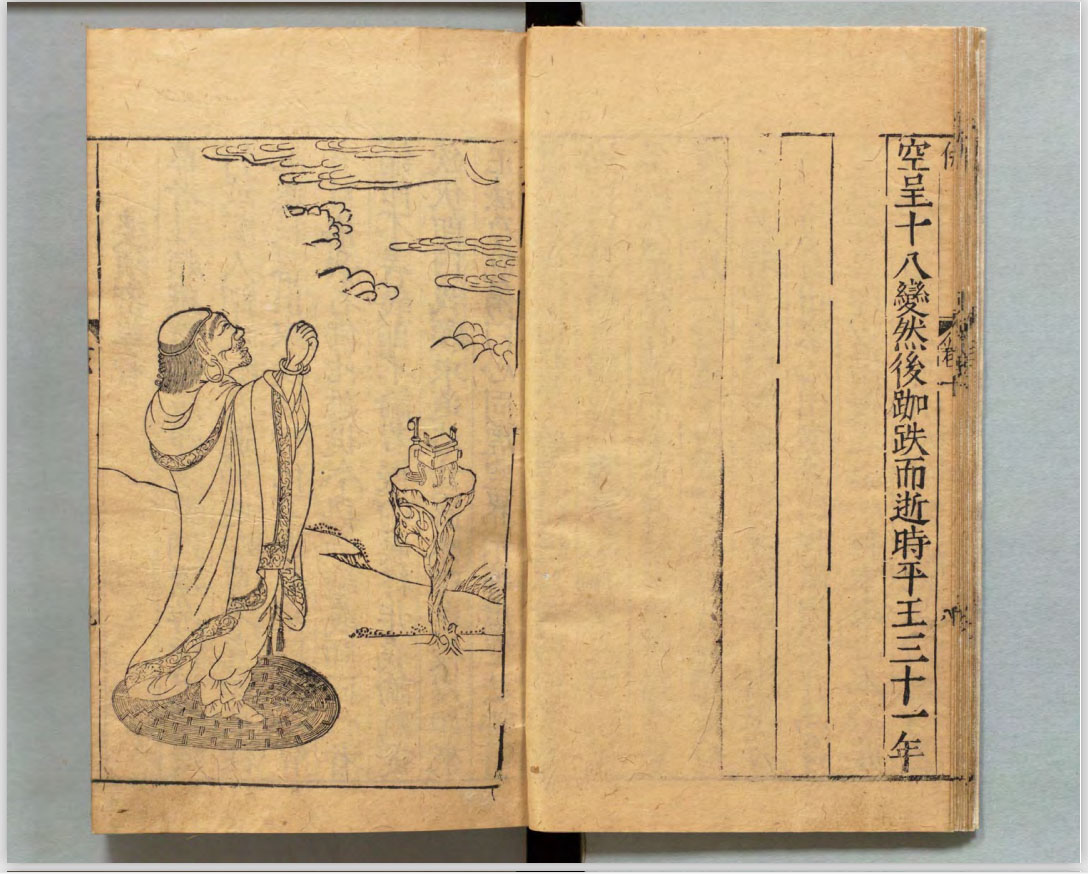 空呈十八變然後跏趺而逝時平王三十一年